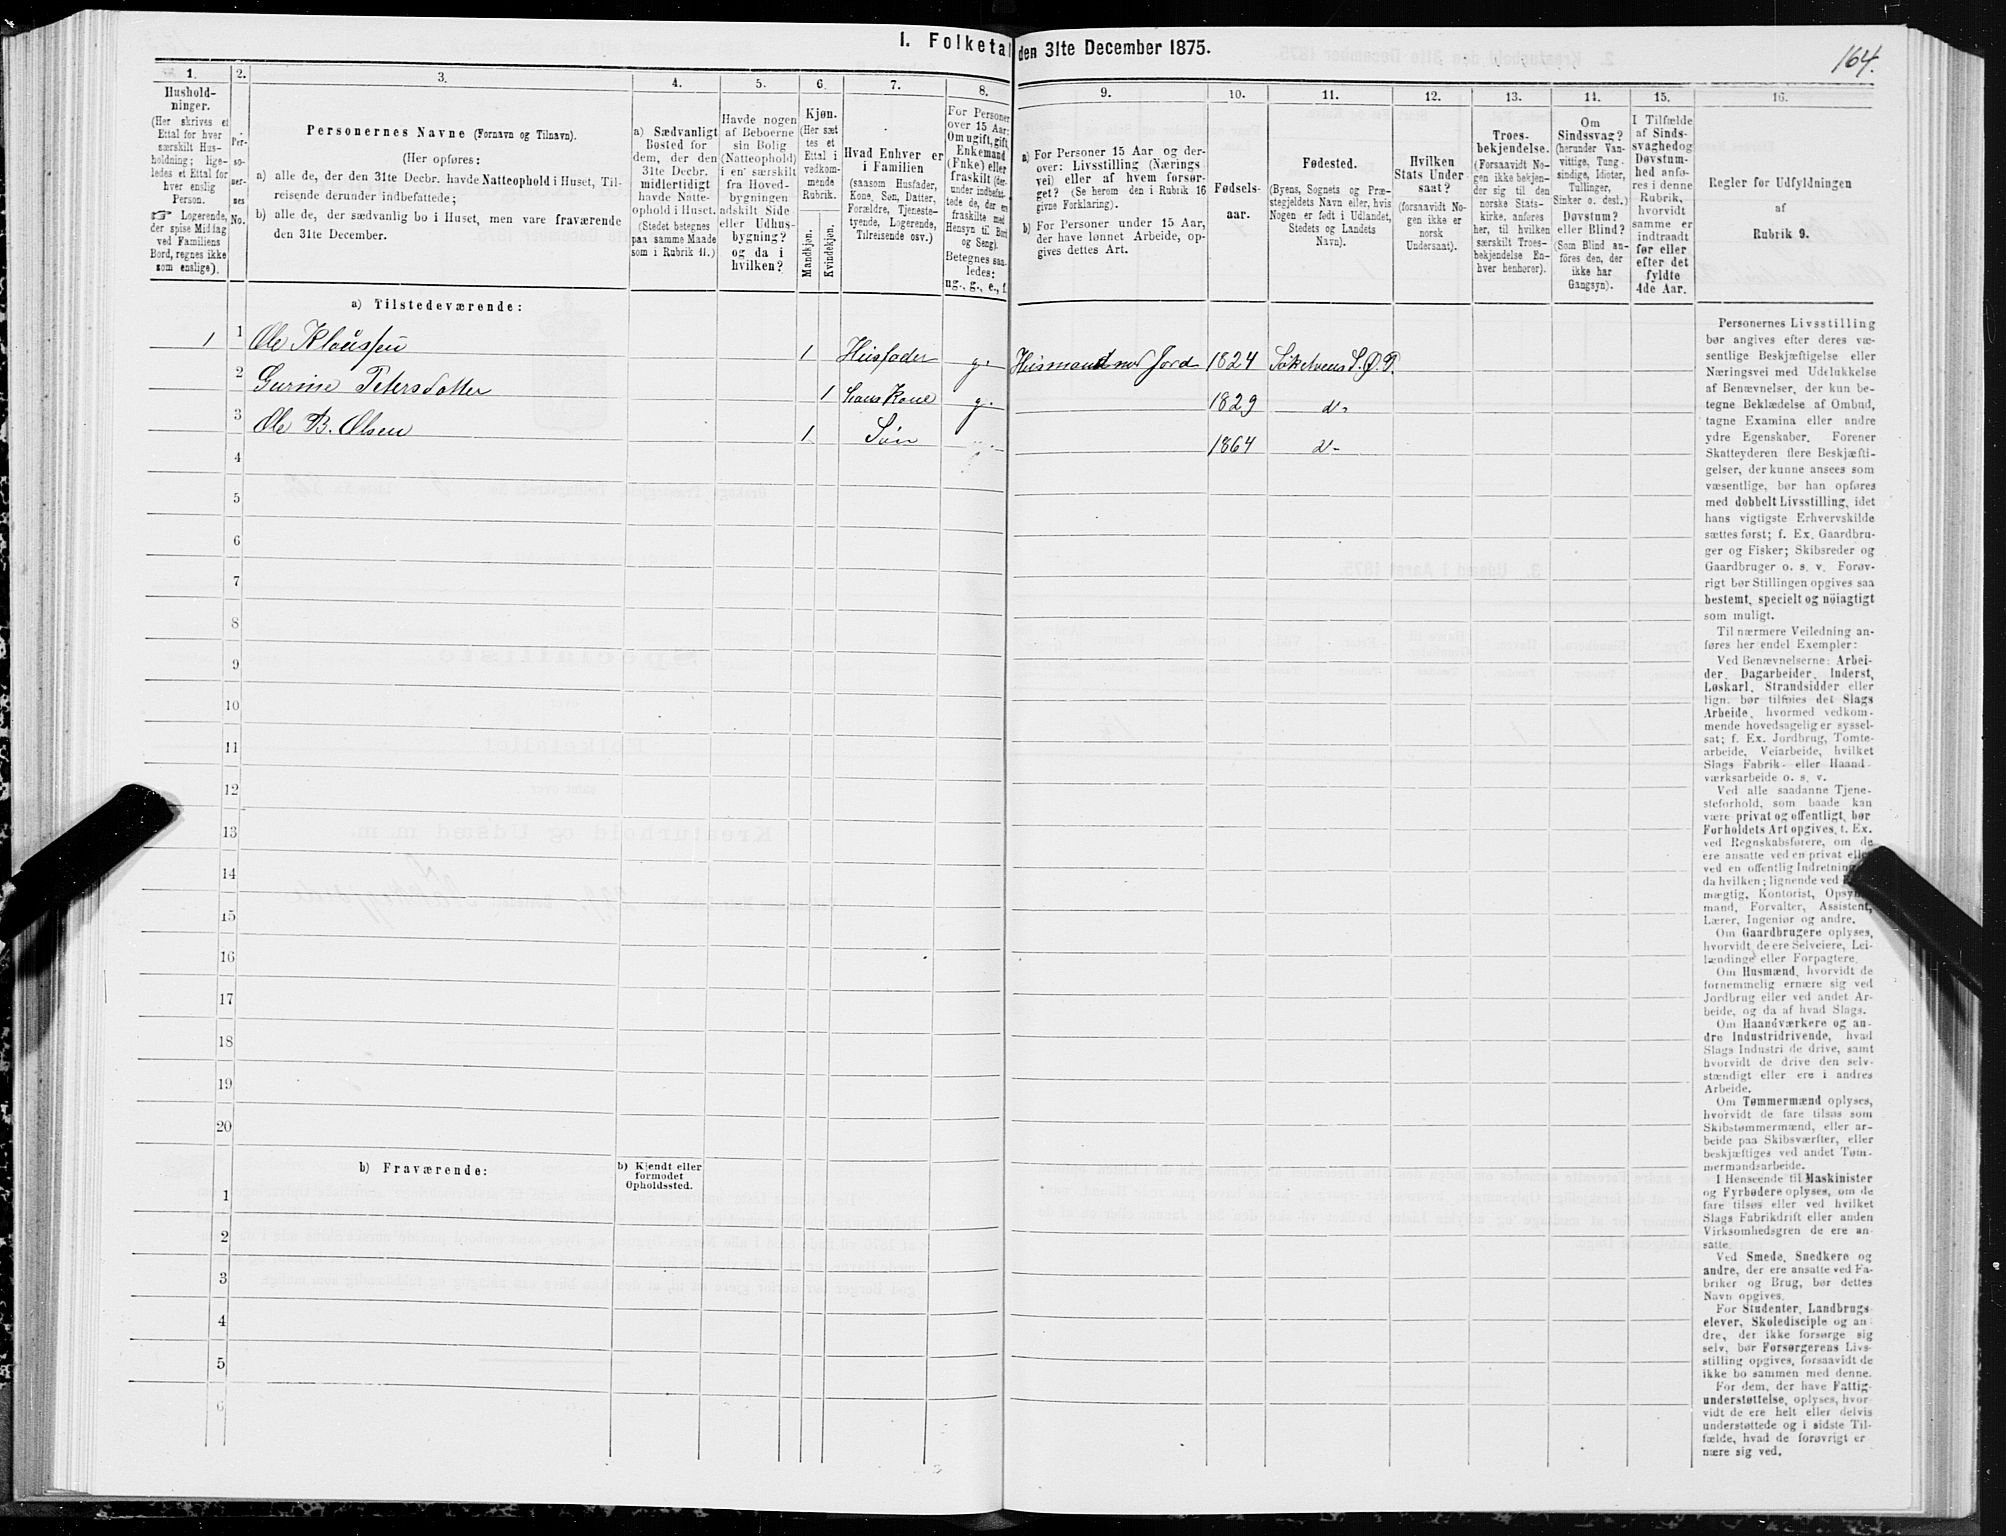 1. Folketal den 31te December 1875.
164.
1.
Hushold-
ninger.
(Her skrives et
Ettal for hver
særskilt Hus-
holdning; lige-
ledes et Ettal for
hver enslig
Person.
☞ Logerende,
der spise Middag
ved Familiens
Bord, regnes ikke
som enslige).
2.
Per-
so-
ner-
nes
No.
3.
Personernes Navne (Fornavn og Tilnavn).
(Her opføres:
a) alle de, der den 31te Decbr. havde Natteophold i Huset, Til-
reisende derunder indbefattede;
b) alle de, der sædvanlig bo i Huset, men vare fraværende
den 31te December.
4.
a) Sædvanligt
Bosted for
dem, der den
31te Decbr.
midlertidigt
havde Natte-
ophold i Huset.
(Stedet betegnes
paa samme Maade
som i Rubrik 11.)
5.
Havde nogen
af Beboerne
sin Bolig
(Natteophold)
i en særskilt
fra Hoved-
bygningen
adskilt Side
eller Udhus-
bygning?
og da i
hvilken?
6.
Kjøn.
(Her sæt
tes et
Ettal i
vedkom-
mende
Rubrik.
Mandkjøn.
Kvindekjøn.
7.
Hvad Enhver er
i Familien
(saasom Husfader,
Kone, Søn, Datter,
Forældre, Tjeneste-
tyende, Logerende,
Tilreisende osv.)
8.
For Personer
over 15 Aar:
Om ugift, gift,
Enkemand
(Enke) eller
fraskilt (der-
under indbefat-
tede de, der er
fraskilte med
Hensyn til Bord
og Seng).
Betegnes saa-
ledes:
ug., g., e., f.
9.
a) For Personer 15 Aar og der-
over: Livsstilling (Nærings
vei) eller af hvem forsør-
get? (Se herom den i Rubrik 16
givne Forklaring).
b) For Personer under 15 Aar,
der have lønnet Arbeide, op-
gives dettes Art.
10.
Fødsels-
aar.
11.
Fødested.
(Byens, Sognets og Præ-
stegjeldets Navn eller, hvis
Nogen er født i Udlandet,
Stedets og Landets
Navn).
12.
Hvilken
Stats Under
saat?
(forsaavidt No-
gen ikke er
norsk
Undersaat).
13.
Troes-
bekjendelse.
(Forsaavidt No-
gen ikke bekjen-
der sig til den
norske Stats-
kirke, anføres
her, til hvilken
særskilt Troes-
bekjendelse En-
hver henhører).
14.
Om
Sindssvag?
(herunder Van-
vittige, Tung-
sindige, Idioter,
Tullinger,
Sinker o. desl.)
Døvstum?
eller Blind?
(Som Blind an-
føres den, der
ikke har
Gangsyn).
15.
I Tilfælde
af Sinds-
svaghed og
Døvstum-
hed anfø-
res i denne
Rubrik,
hvorvidt
samme er
indtraadt
før eller
efter det
fyldte
4de Aar.
16.
Regler for Udfyldningen
af
Rubrik 9.
a) Tilstedeværende:
1 1 Ole Klaussen 1 Husfader g. Husmand med Jord 1824 S. Ø. P.
2 Gurine Petersdatter 1 hans Kone g. 1829 d-
3 Ole B. Olsen 1 Søn 1864 d-
4
5
6
7
8
9
10
11
12
13
14
15
16
17
18
19
20
b) Fraværende:
b) Kjendt eller
formodet
Opholdssted.
1
2
3
4
5
6
Personernes Livsstilling
bør angives efter deres væ-
sentlige Beskjæftigelse eller
Næringsvei med Udelukkelse
af Benævnelser, der kun be-
tegne Beklædelse af Ombud,
tagne Examina eller andre
ydre Egenskaber. Forener
Skatteyderen flere Beskjæfti-
gelser, der kunne ansees som
væsentlige, bør han opføres
med dobbelt Livsstilling, idet
hans vigtigste Erhvervskilde
sættes først; f. Ex. Gaardbru-
ger og Fisker; Skibsreder og
Gaardbruger o. s. v. Forøv-
rigt bør Stillingen opgives saa
bestemt, specielt og nöiagtigt
som muligt.
Til nærmere Veiledning an-
føres her endel Exempler:
Ved Benævnelserne: Arbei-
der, Dagarbeider, Inderst,
Løskarl, Strandsidder eller
lign. bør tilføies det Slags
Arbeide, hvormed vedkom-
mende hovedsagelig er syssel-
sat; f. Ex. Jordbrug, Tomte-
arbeide, Veiarbeide, hvilket
Slags Fabrik- eller Haand
værksarbeide o. s. v.
Ved alle saadanne Tjene-
steforhold, som baade kan
være privat og offentligt, bør
Forholdets Art opgives, f. Ex.
ved Regnskabsførere, om de
ere ansatte ved en privat eller
ved en offentlig Indretning
da hvilken; lignende ved
mægtig, Kontorist,
mand, Forvalter, Assistent,
Lærer, Ingeniør og andre.
Om Gaardbrugere oplyses,
hvorvidt de ere Selveiere, Lei-
lændinge eller Forpagtere.
Om Husmænd, hvorvidt de
fornemmelig ernære sig ved
Jordbrug eller ved andet Ar-
beide, og da af hvad Slags.
Om Haandværkere og an-
dre Industridrivende, hvad
Slags Industri de drive, samt
hvorvidt de drive den selv-
stændigt eller ere i andres
Arbeide.
Om Tømmermænd oplyses,
hvorvidt de fare tilsøs som
Skibstømmermænd, eller ar-
beide paa Skibsværfter, eller
beskjæftiges ved andet Tøm-
mermandsarbeide.
I Henseende til Maskinister
og Fyrbødere oplyses, om de
fare tilsøs eller ved hvilket
Slags Fabrikdrift eller anden
Virksomhedsgren de ere an-
satte.
Ved Smede, Snedkere og
andre, der ere ansatte ved Fa-
briker og Brug, bør dettes
Navn opgives.
For Studenter, Landbrugs-
elever, Skoledisciple og an-
dre, der ikke forsørge sig
selv, bør Forsørgerens Livs-
stilling opgives, forsaavidt de
ikke bo sammen med denne.
For dem, der have Fattig-
understøttelse, oplyses, hvor-
vidt de ere helt eller delvis
understøttede og i sidste Til-
fælde, hvad de forøvrigt er-
nære sig ved.